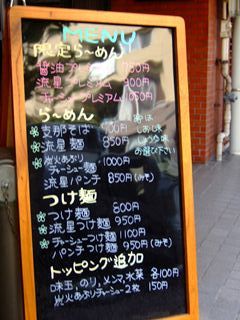 MENU
限定らーめん
醤油プレミアム 850円
流星プレミアム 900円
プレミアム 1050円
らーめん
支那そば 700円
流星麺 850円
味は
しお味
しょうゆ味
お選び下さい
炭火あぶり
チャーシュー麺 1000円
流星パンチ 850円(みそ)
つけ麺
つけ麺 800円
流星つけ麺 950円
チャーシューつけ麺 1100円
パンチつけ麺 950円(みそ)
トッピング追加
味玉、のり、メンマ、水菜 各100円
炭火あぶりチャーシュー2枚 150円